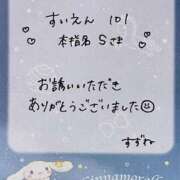 すいえん 101
本指名 Sさま
お誘いいただき
ありがとうございました
すずね